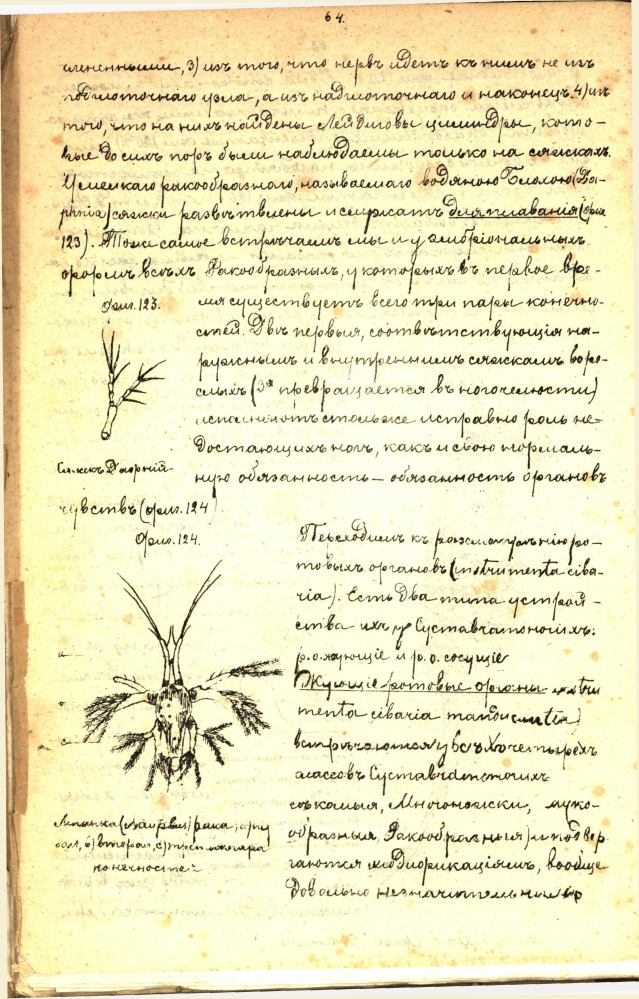 64.
члененными, 3) изъ того, что нервъ идетъ къ нимъ не изъ
подглоточнаго узла, а изъ надглоточнаго и наконецъ 4) изъ
того, что на нихъ найдены Лейдиговы цилиндры, кото-
рые до сихъ поръ были наблюдаемы только на сяжкахъ.
У мелкаго ракообразнаго, называемаго водяною блохою (Da-
phnia) сяжки развѣтвлены и служатъ для плаванія (фиг.
123). Тоже самое встрѣчаемъ мы и у эмбріональныхъ
формъ всѣхъ Ракообразныхъ, у которыхъ въ первое вре-
Фиг. 123.
мя существуетъ всего три пары конечно-
стей. Двѣ первыя, соотвѣтствующія на-
ружнымъ и внутреннимъ сяжкамъ взро-
слыхъ (3я превращается въ ногочелюсти)
исполняютъ столь же исправно роль не-
достающихъ ногъ, какъ и свою нормаль-
Сяжекъ Дафній
ную обязанность — обязанность органовъ
чувствъ (фиг. 124)
Фиг. 124.
Переходимъ къ разсмотрѣнію ро-
товыхъ органовъ (instrumenta ciba-
ria). Есть два типа устрой-
ства ихъ у Суставчатоногихъ:
р. о. жующіе и р. о. сосущіе
Жующіе ротовые органы instru
menta cibaria
встрѣчаются у всѣхъ четырехъ
классовъ Суставчатоногихъ
съкомыя, Многоножки, пауко-
образныя, Ракообразныя) и подвер
гаются модификаціямъ, вообще
довольно незначительнымъ
а
Личинка рака; а) пер
вая, б) вторая, с) третья пара
конечностей